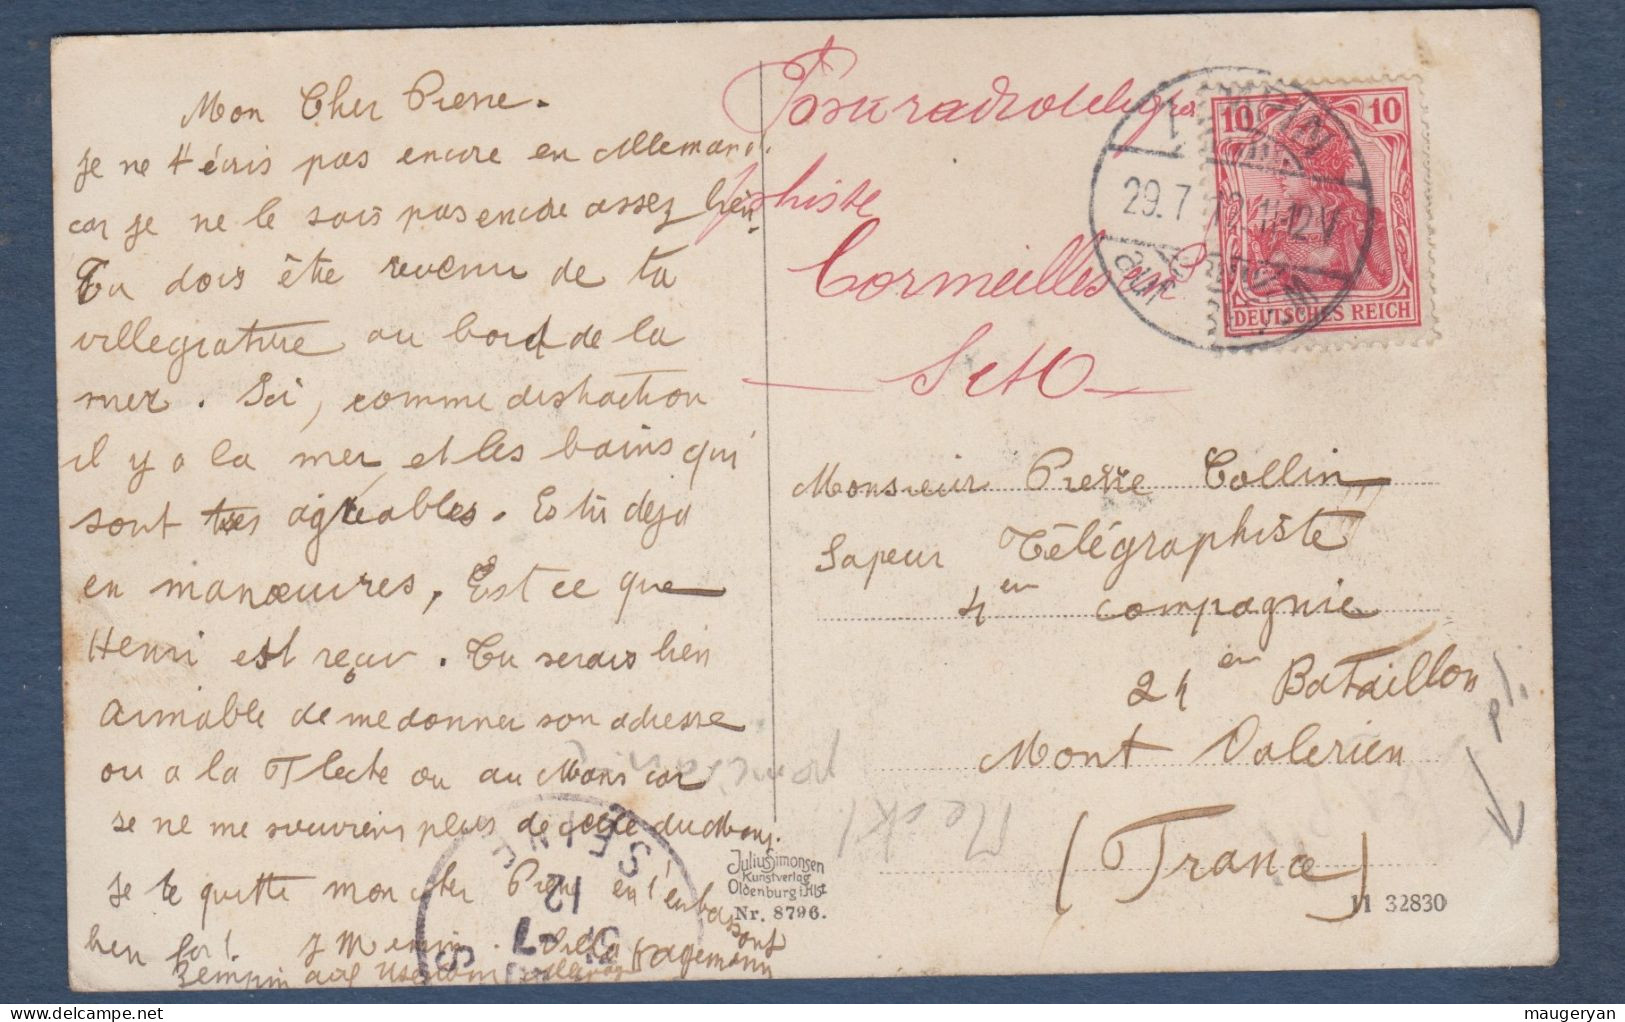 Mon Cher Pierre.
Je ne t'écris pas encore en Allemand
car je ne le sais pas encore assez bien.
Tu dois être revenu de ta
villegiature au bord de la
mer. Ici, comme distraction
il y a la mer, et les bains qui
sont très agréables. Es tu deja
en manœuvres, Est ce que
Henri est reçu. Tu serais bien
aimable de me donner son adresse
ou a la Flèche ou au Mans car
je ne me souviens plus de celle du Mans.
Je te quitte mon cher Pierre en t'embrassant
bien fort. Villa Hagemann
Zempin auf Usedom Allemagne
Poste radiotelegra
phiste
Cormeilles en P
S et O
ZEMPIN
29.7.12.11-12V
10 10
DEUTSCHES REICH
Monsieur Pierre Collin
Sapeur Télégraphiste
4en compagnie
24en Bataillon
Mont Valerien
(France)
Julius Simonsen
Kunstverlag
Oldenburg i. Hlst
Nr. 8796.
11 32830
SEINE
12
maugeryan